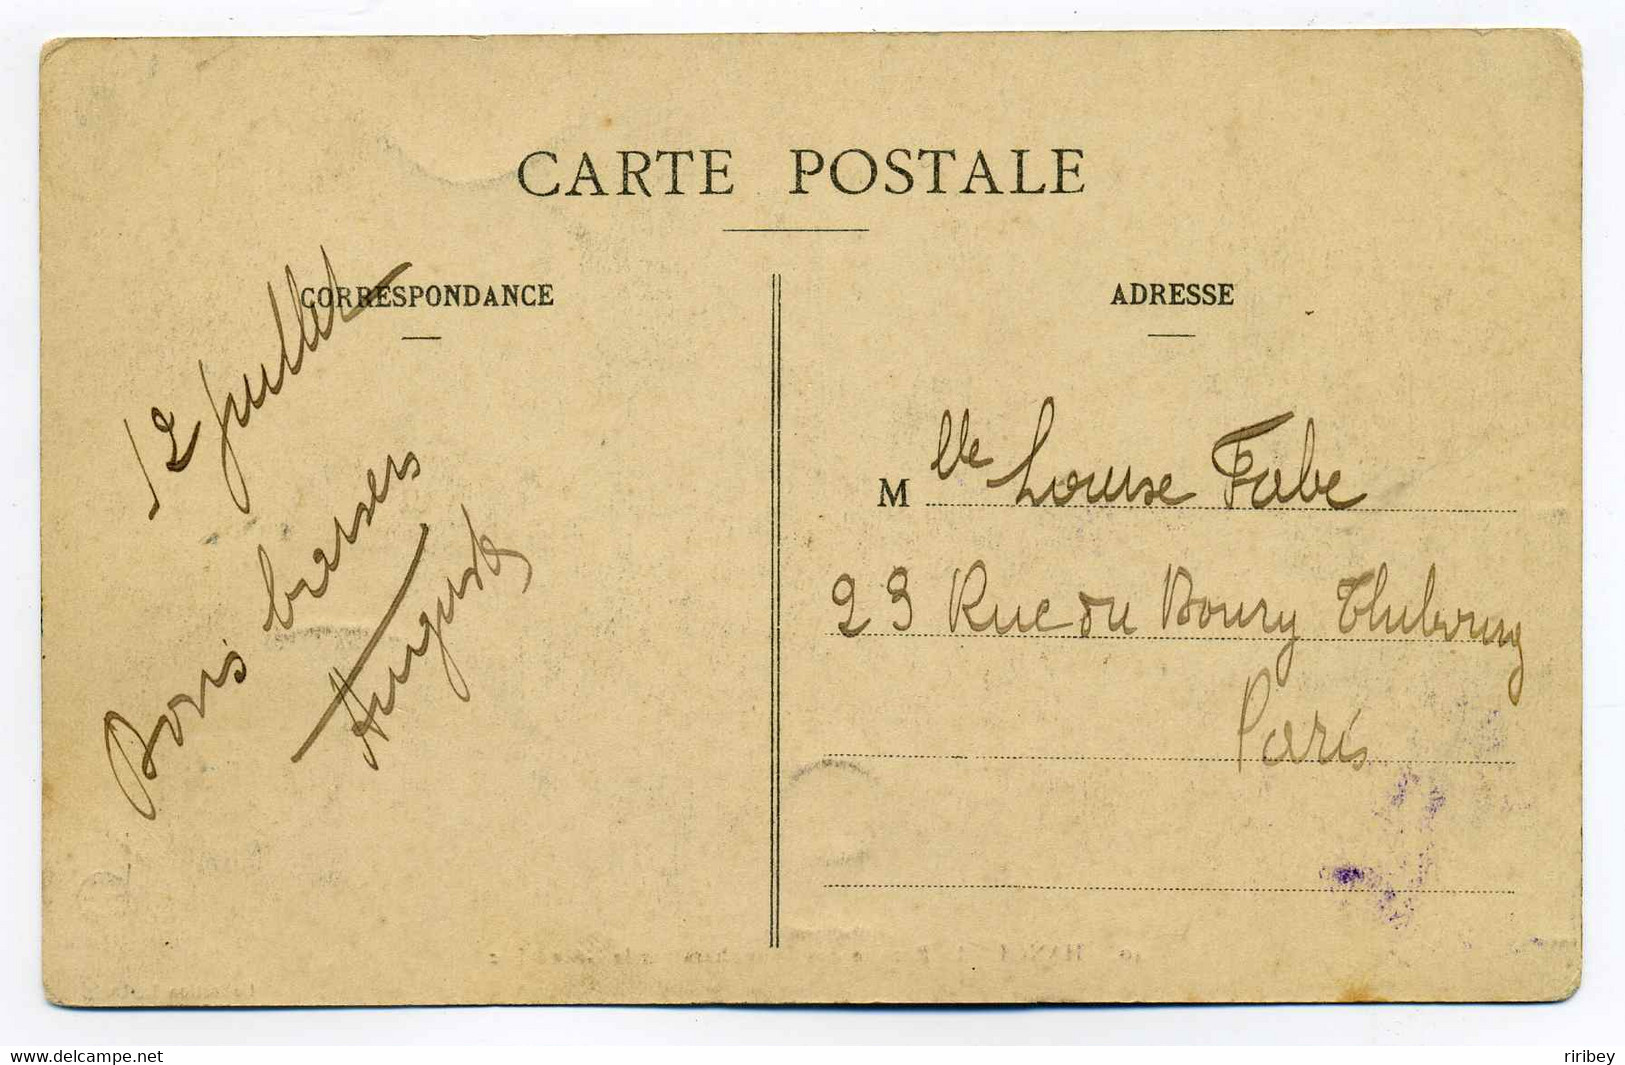 CARTE POSTALE
CORRESPONDANCE
ADRESSE
12 Juillet
Bons baisers
Auguste
Mlle Louise Fabe
23 Rue du Bourg Thibourg
Paris
delcampe.net
riribey